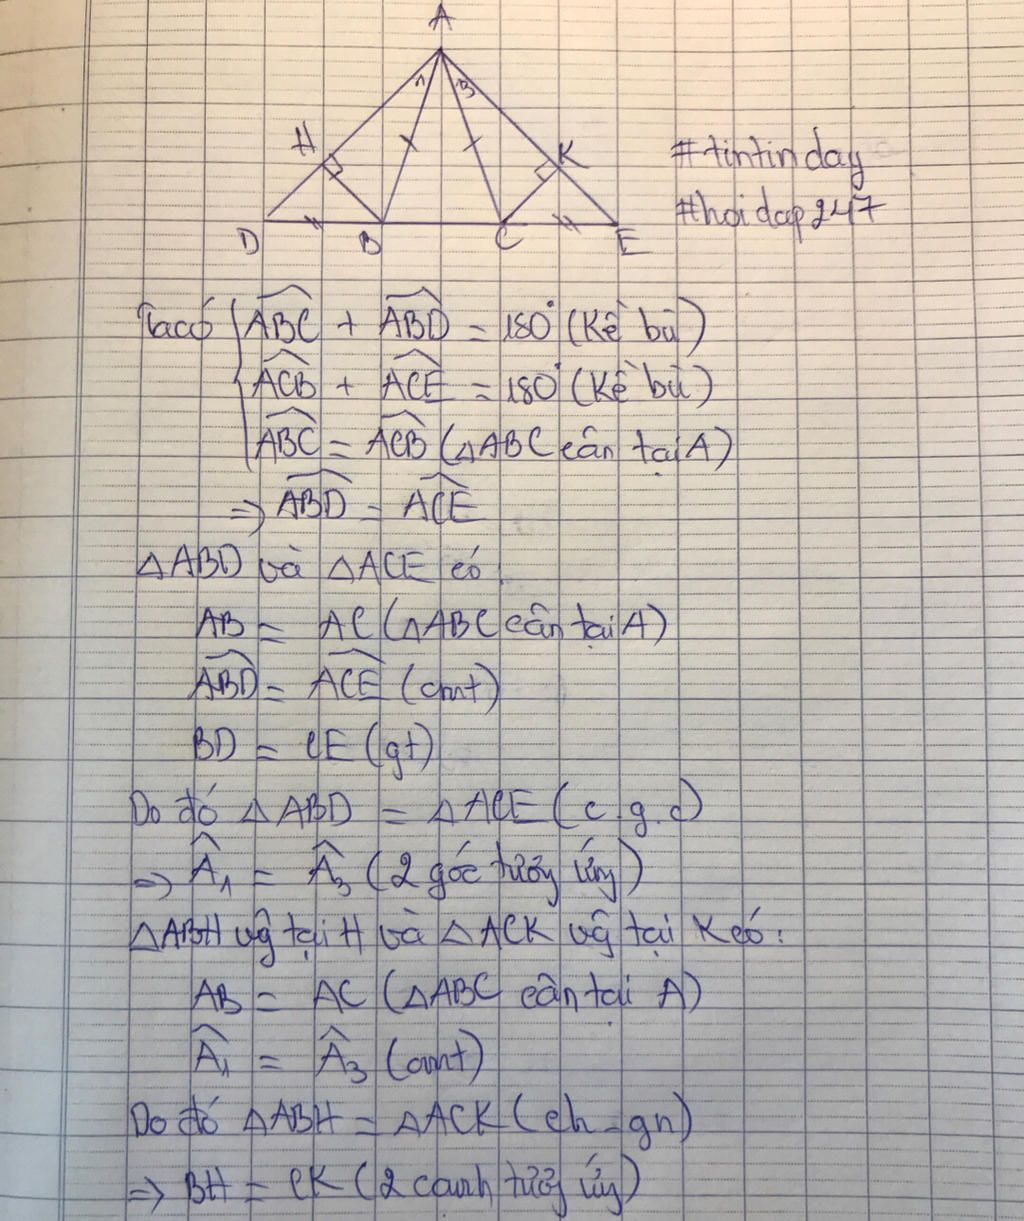 A
1 3
H K
D B C E
#tintinday
#hoidap247
Ta có { \widehat{ABC} + \widehat{ABD} = 180° (kề bù)
\widehat{ACB} + \widehat{ACE} = 180° (kề bù)
\widehat{ABC} = \widehat{ACB} (△ABC cân tại A)
=> \widehat{ABD} = \widehat{ACE}
△ABD và △ACE có:
AB = AC (△ABC cân tại A)
\widehat{ABD} = \widehat{ACE} (cmt)
BD = CE (gt)
Do đó △ABD = △ACE (c.g.c)
=> \widehat{A}₁ = \widehat{A}₃ (2 góc tương ứng)
△ABH vg tại H và △ACK vg tại K có:
AB = AC (△ABC cân tại A)
\widehat{A}₁ = \widehat{A}₃ (cmt)
Do đó △ABH = △ACK (ch - gn)
=> BH = CK (2 cạnh tương ứng)